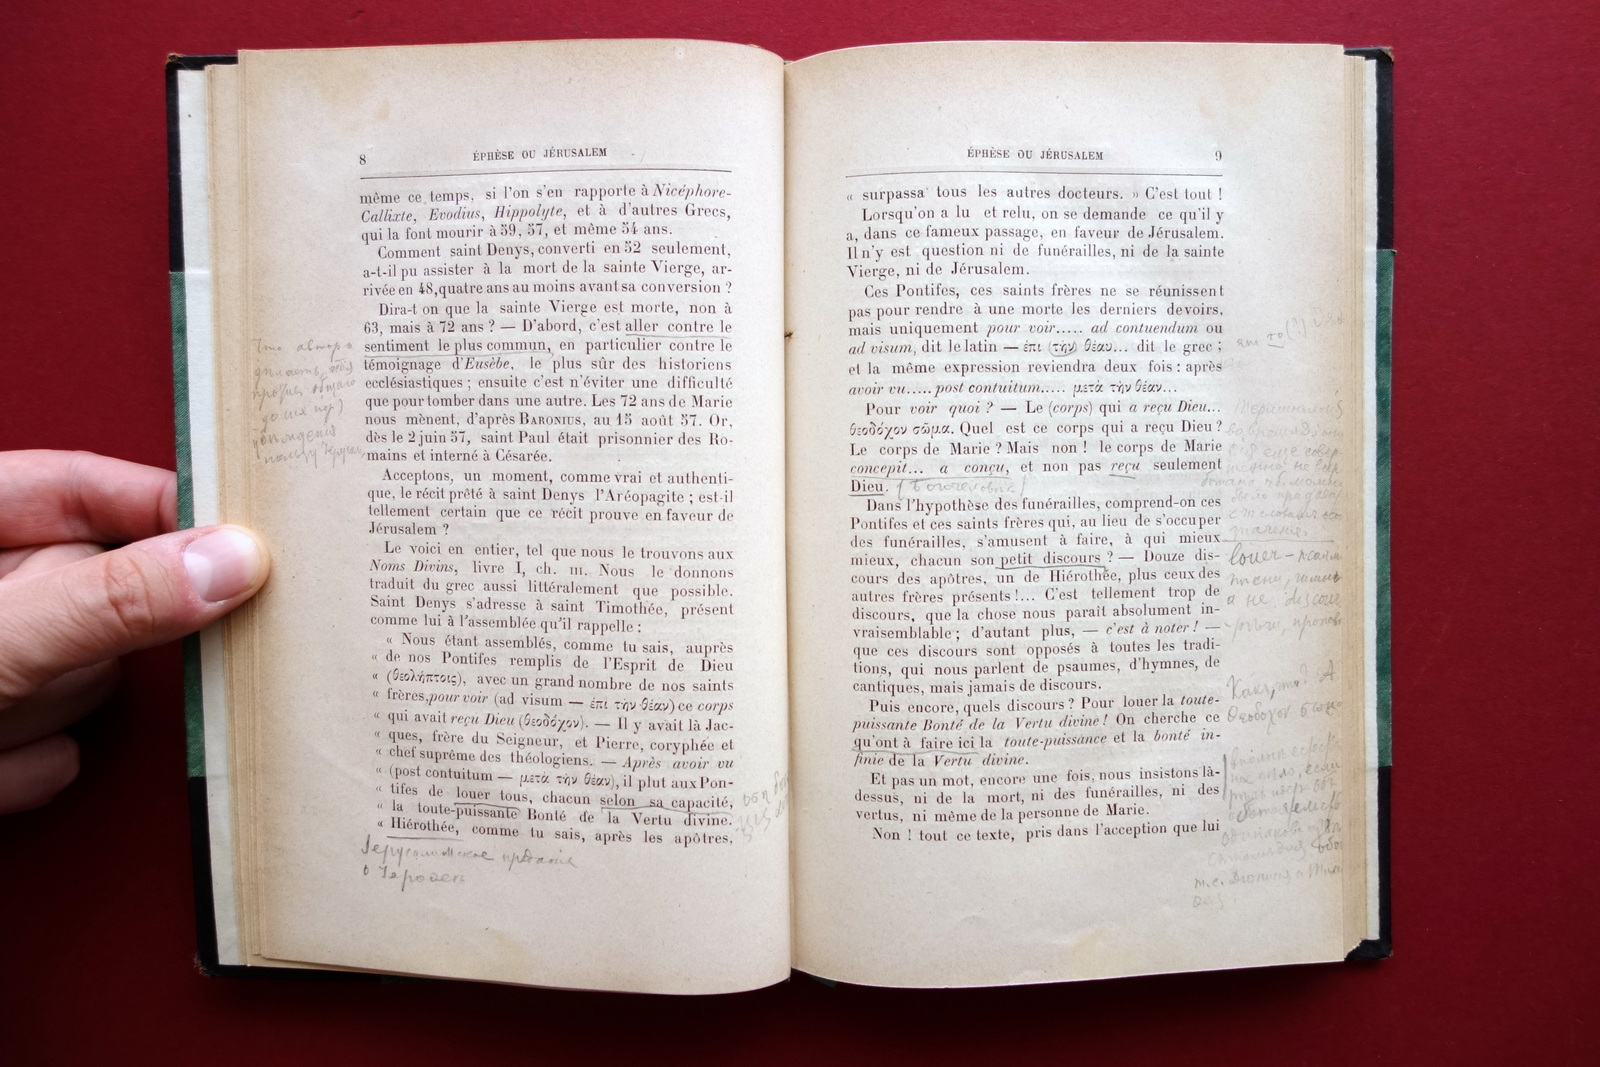 8 ÉPHÈSE OU JÉRUSALEM
même ce temps, si l'on s'en rapporte à Nicéphore-
Callixte, Evodius, Hippolyte, et à d'autres Grecs,
qui la font mourir à 59, 57, et même 54 ans.
Comment saint Denys, converti en 52 seulement,
a-t-il pu assister à la mort de la sainte Vierge, ar-
rivée en 48, quatre ans au moins avant sa conversion ?
Dira-t on que la sainte Vierge est morte, non à
63, mais à 72 ans ? — D'abord, c'est aller contre le
sentiment le plus commun, en particulier contre le
témoignage d'Eusèbe, le plus sûr des historiens
ecclésiastiques ; ensuite c'est n'éviter une difficulté
que pour tomber dans une autre. Les 72 ans de Marie
nous mènent, d'après BARONIUS, au 15 août 57. Or,
dès le 2 juin 57, saint Paul était prisonnier des Ro-
mains et interné à Césarée.
Acceptons, un moment, comme vrai et authenti-
que, le récit prêté à saint Denys l'Aréopagite ; est-il
tellement certain que ce récit prouve en faveur de
Jérusalem ?
Le voici en entier, tel que nous le trouvons aux
Noms Divins, livre I, ch. III. Nous le donnons
traduit du grec aussi littéralement que possible.
Saint Denys s'adresse à saint Timothée, présent
comme lui à l'assemblée qu'il rappelle :
« Nous étant assemblés, comme tu sais, auprès
« de nos Pontifes remplis de l'Esprit de Dieu
« (θεολήπτοις), avec un grand nombre de nos saints
« frères, pour voir (ad visum — ἐπι τὴν θέαν) ce corps
« qui avait reçu Dieu (θεοδόχον). — Il y avait là Jac-
« ques, frère du Seigneur, et Pierre, coryphée et
« chef suprême des théologiens. — Après avoir vu
« (post contuitum — μετὰ τὴν θέαν), il plut aux Pon-
« tifes de louer tous, chacun selon sa capacité,
« la toute-puissante Bonté de la Vertu divine.
« Hiérothée, comme tu sais, après les apôtres,
Іерусалимское предание
о Іерофеѣ
ÉPHÈSE OU JÉRUSALEM 9
« surpassa tous les autres docteurs. » C'est tout !
Lorsqu'on a lu et relu, on se demande ce qu'il y
a, dans ce fameux passage, en faveur de Jérusalem.
Il n'y est question ni de funérailles, ni de la sainte
Vierge, ni de Jérusalem.
Ces Pontifes, ces saints frères ne se réunissent
pas pour rendre à une morte les derniers devoirs,
mais uniquement pour voir..... ad contuendum ou
ad visum, dit le latin — ἐπι (τὴν) θέαν... dit le grec ;
et la même expression reviendra deux fois : après
avoir vu..... post contuitum..... μετὰ τὴν θέαν...
Pour voir quoi ? — Le (corps) qui a reçu Dieu...
θεοδόχον σῶμα. Quel est ce corps qui a reçu Dieu ?
Le corps de Marie ? Mais non ! le corps de Marie
concepit... a conçu, et non pas reçu seulement
Dieu.
Dans l'hypothèse des funérailles, comprend-on ces
Pontifes et ces saints frères qui, au lieu de s'occuper
des funérailles, s'amusent à faire, à qui mieux
mieux, chacun son petit discours ? — Douze dis-
cours des apôtres, un de Hiérothée, plus ceux des
autres frères présents !... C'est tellement trop de
discours, que la chose nous paraît absolument in-
vraisemblable ; d'autant plus, — c'est à noter ! —
que ces discours sont opposés à toutes les tradi-
tions, qui nous parlent de psaumes, d'hymnes, de
cantiques, mais jamais de discours.
Puis encore, quels discours ? Pour louer la toute-
puissante Bonté de la Vertu divine ! On cherche ce
qu'ont à faire ici la toute-puissance et la bonté in-
finie de la Vertu divine.
Et pas un mot, encore une fois, nous insistons là-
dessus, ni de la mort, ni des funérailles, ni des
vertus, ni même de la personne de Marie.
Non ! tout ce texte, pris dans l'acception que lui
louer
а не